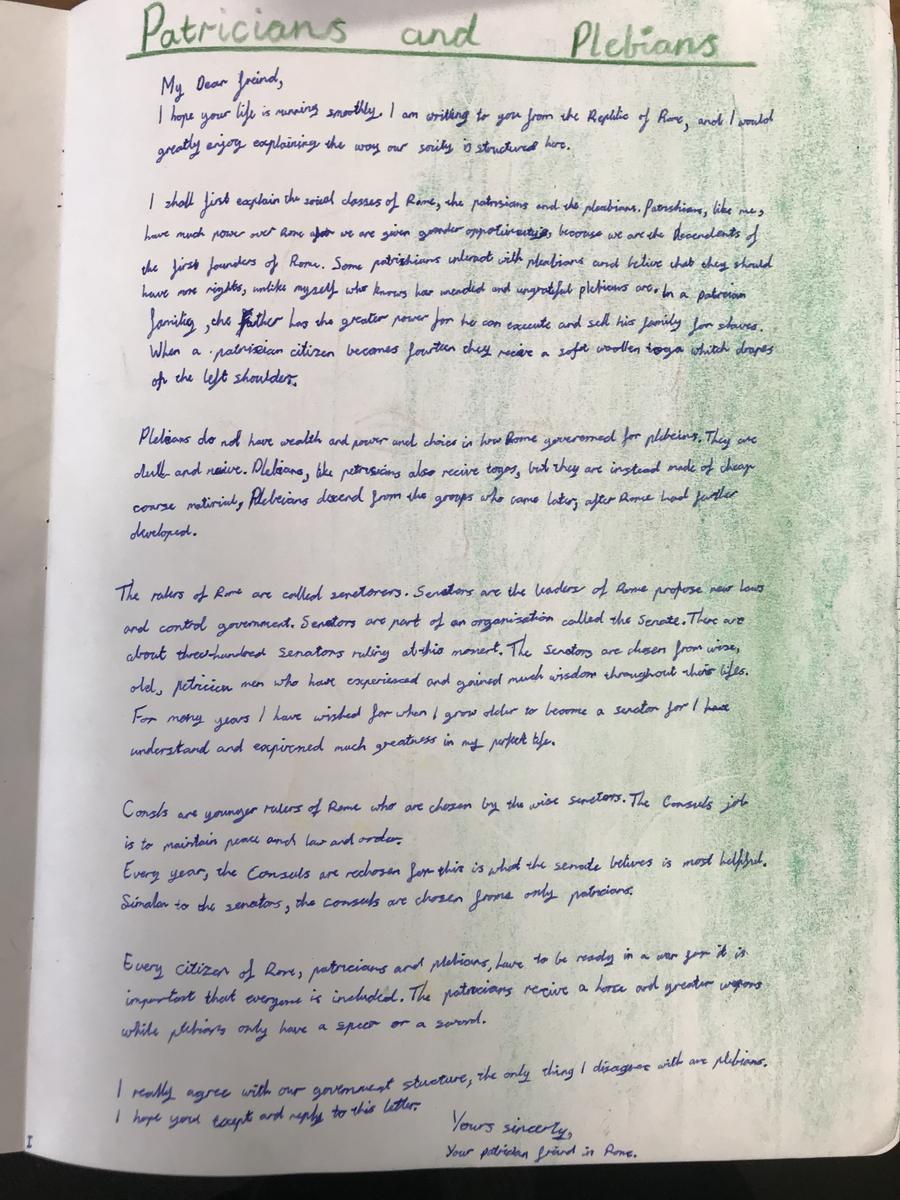 Patricians and Plebians
My Dear freind,
I hope your life is running smoothly. I am writing to you from the Replic of Rome, and I would
greatly enjoy explaining the way our soity is structured here.
I shall first explain the soical classes of Rome, the patrisians and the pleabians. Patrishians, like me,
have much power over Rome for we are given grander because we are the Decendents of
the first founders of Rome. Some patrishians interact with pleabians and belive that they should
have more rights, unlike myself who knows how and ungratful plebians are. In a patrician
family, the Father has the greater power for he can execute and sell his family for slaves.
When a patrisian citizen becomes fourteen they recive a soft woollen toga whitch drapes
of the left shoulder.
Plebians do not have wealth and power and choice in how Rome governed for plebeins. They are
dull and naive. Plebians, like patrisians also recive togas, but they are instead made of cheap
coarse material, Plebeians decend from the groups who came later, after Rome had further
developed.
The rulers of Rome are called senetorers. Senators are the leaders of Rome propose new laws
and control government. Senators are part of an organisation called the Senate. There are
about three-hundred senators ruling at this moment. The senators are chosen from wise,
old, patrician men who have experienced and gained much wisdom throughout their lifes.
For many years I have wished for when I grow older to become a senator for I have
understand and expirened much greatness in my perfect life.
Consls are younger rulers of Rome who are chosen by the wise senators. The Consuls job
is to maintain peace and law and order.
Every year, the Consuls are rechosen for this is what the senate belives is most helpful.
Simalar to the senators, the consuls are chosen frome only patricians.
Every citizen of Rome, patricians and plebians, have to be ready in a war for it is
important that everyone is included. The patricians recive a horse and greater wepons
while plebians only have a spear or a sword.
I really agree with our government stucture, the only thing I disagree with are plebians.
I hope you and reply to this letter.
Yours sincerly,
Your patrician freind in Rome.
I